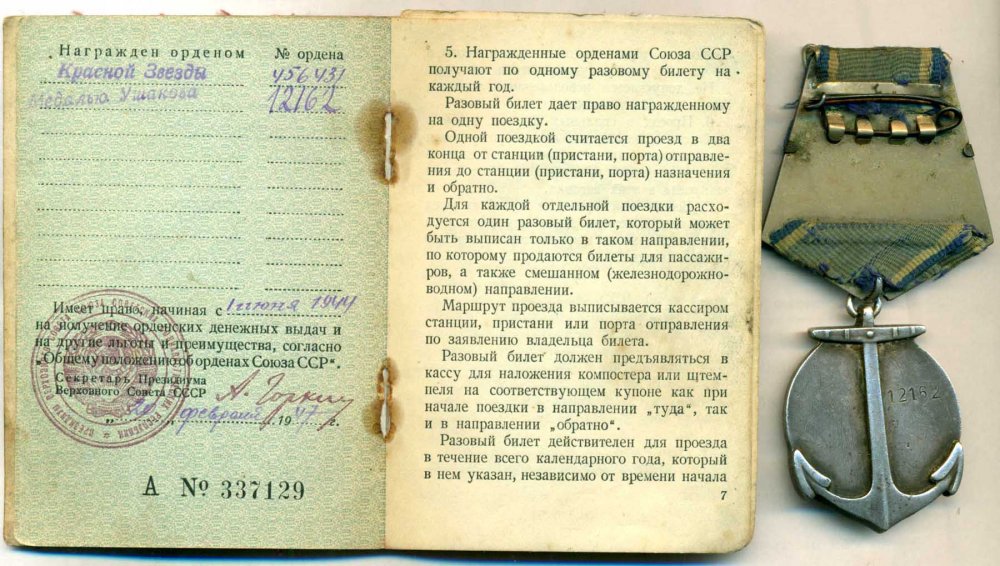 Награжден орденом № ордена
Красной Звезды 456431
Медалью Ушакова 12162
Имеет право, начиная с 1 июня 1944
на получение орденских денежных выдач и
на другие льготы и преимущества, согласно
„Общему положению об орденах Союза ССР“.
Секретарь Президиума
Верховного Совета СССР А. Горкин
февраля 1947 г.
А № 337129
5. Награжденные орденами Союза ССР
получают по одному разовому билету на
каждый год.
Разовый билет дает право награжденному
на одну поездку.
Одной поездкой считается проезд в два
конца от станции (пристани, порта) отправле-
ния до станции (пристани, порта) назначения
и обратно.
Для каждой отдельной поездки расхо-
дуется один разовый билет, который может
быть выписан только в таком направлении,
по которому продаются билеты для пассажи-
ров, а также смешанном (железнодорожно-
водном) направлении.
Маршрут проезда выписывается кассиром
станции, пристани или порта отправления
по заявлению владельца билета.
Разовый билет должен предъявляться в
кассу для наложения компостера или штем-
пеля на соответствующем купоне как при
начале поездки в направлении „туда“, так
и в направлении „обратно“.
Разовый билет действителен для проезда
в течение всего календарного года, который
в нем указан, независимо от времени начала
7
12162